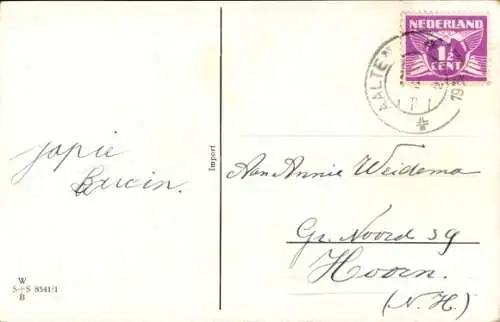 NEDERLAND
1½
CENT
AALTEN
Jopie
Import
Aan Annie Weidema
Gr. Noord 39
Hoorn.
(N.H.)
W
S+S 8541/1
B